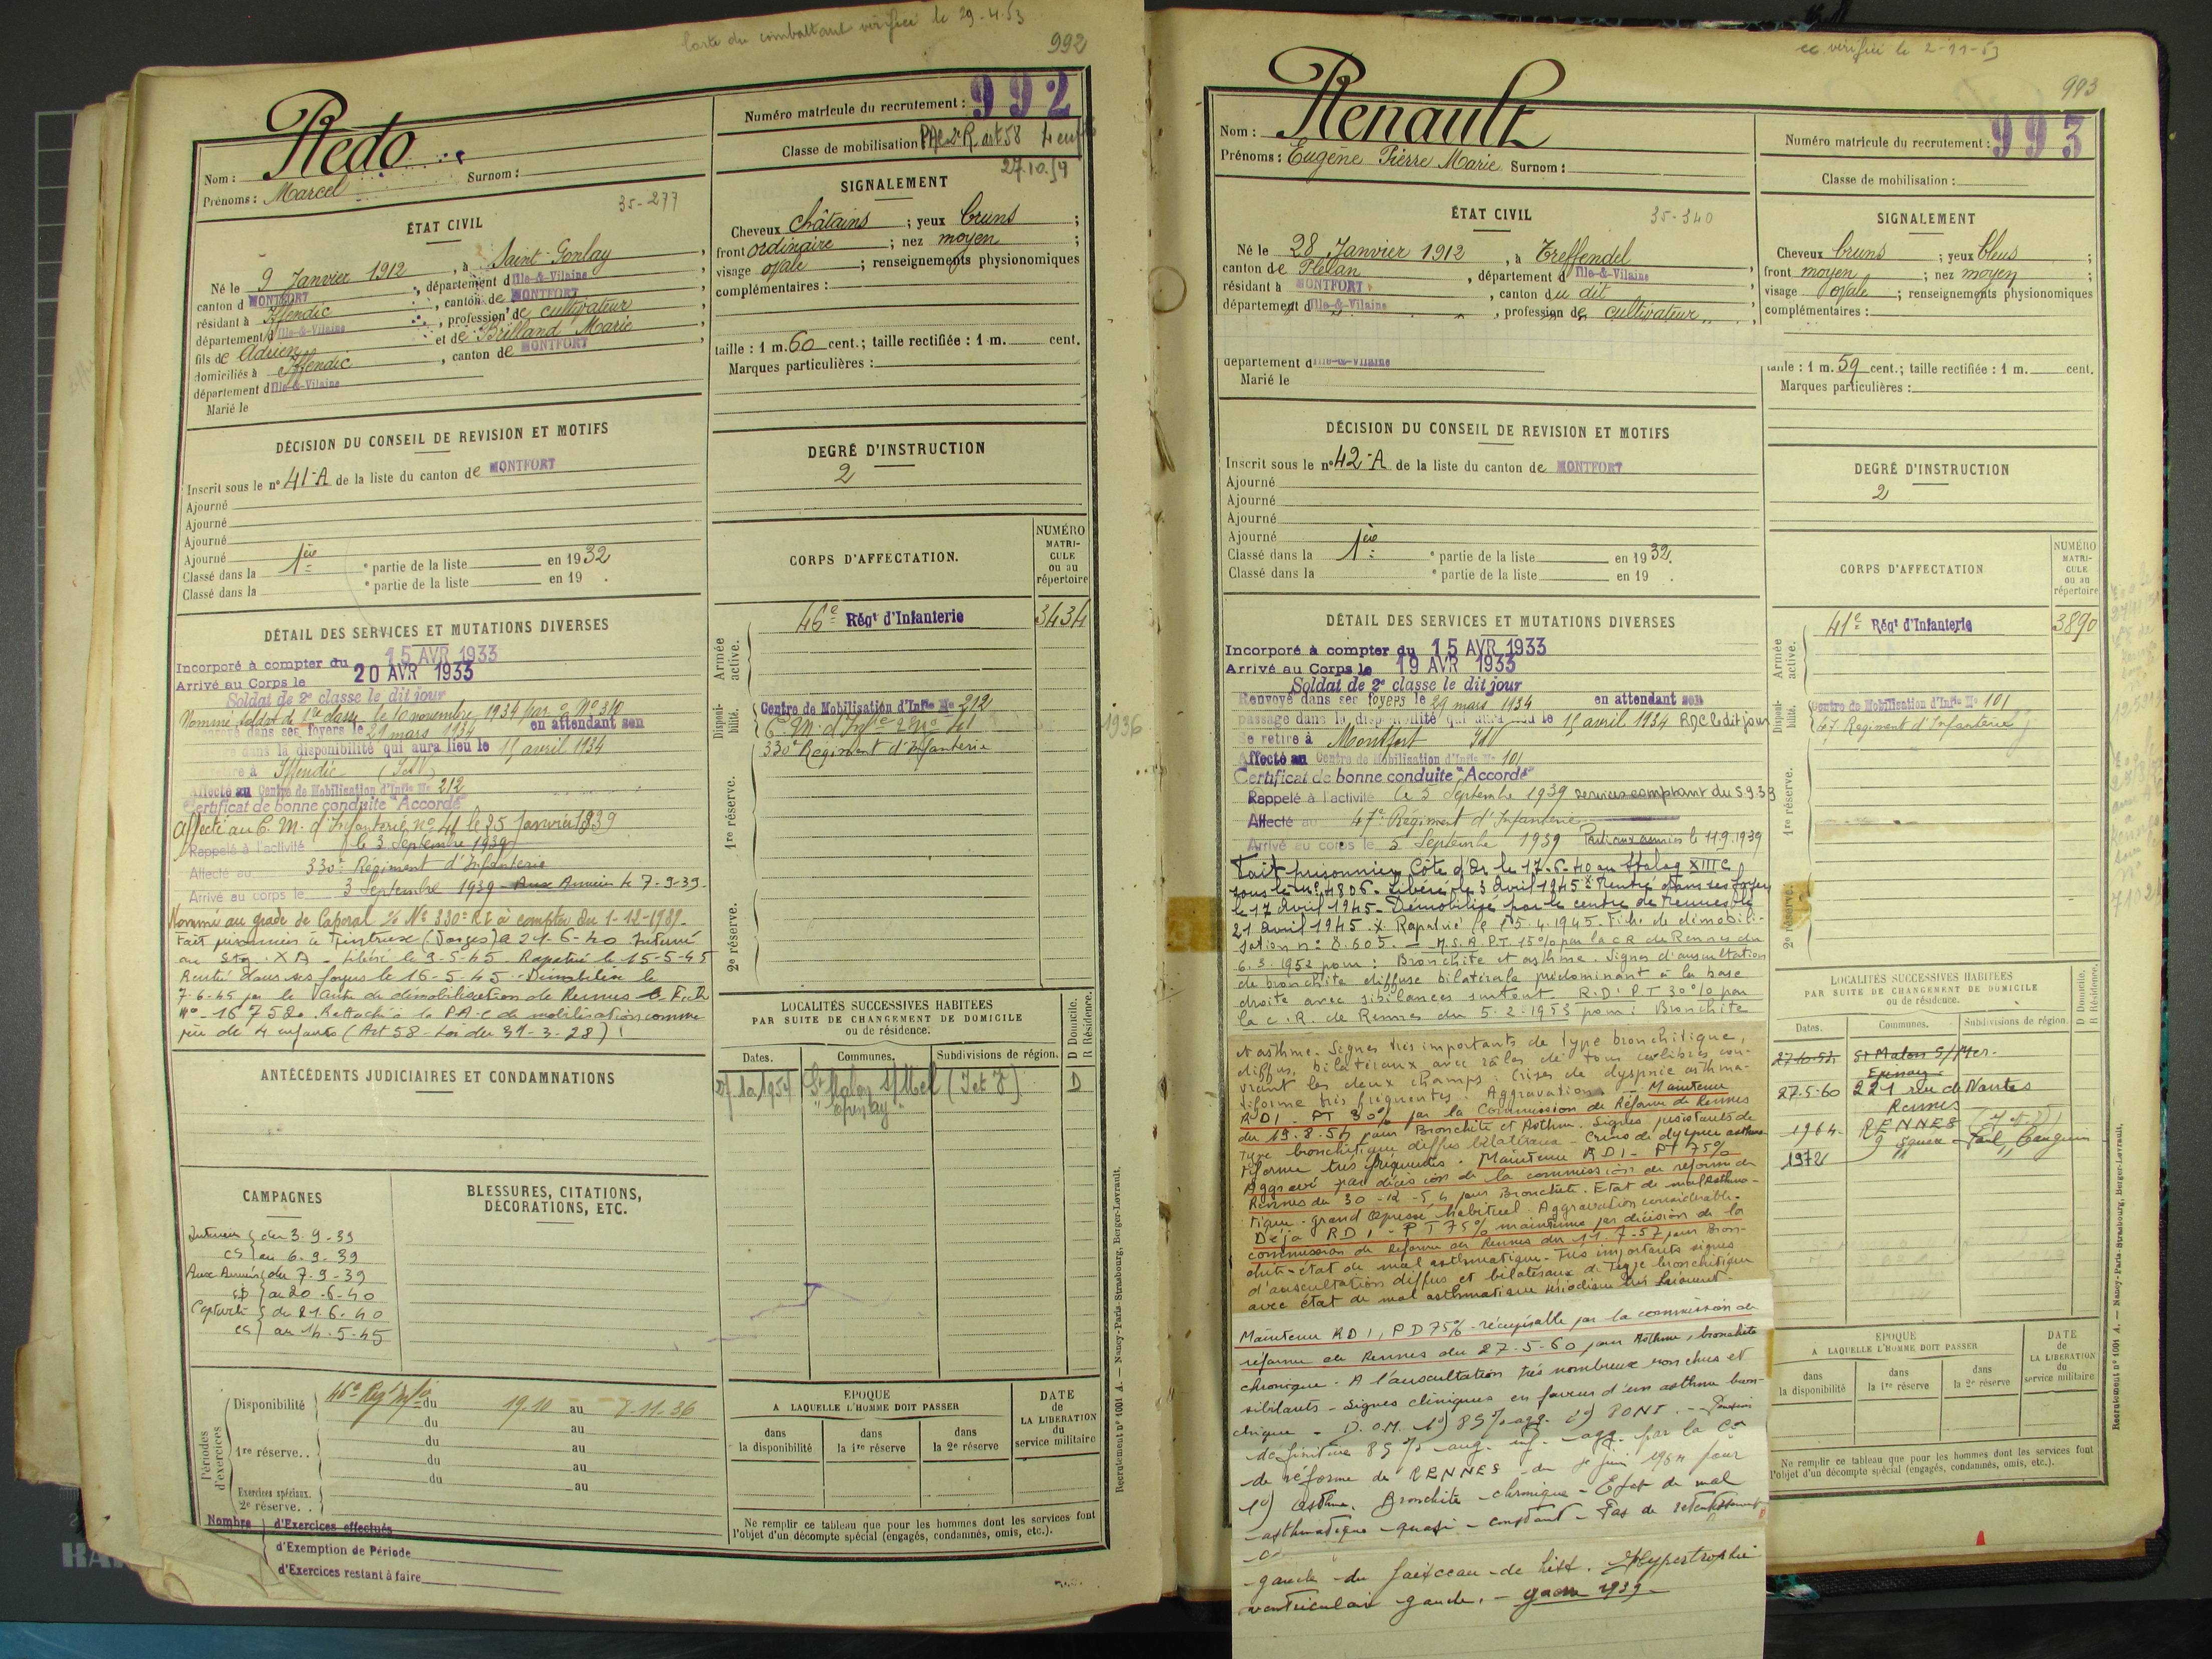 Carte du combattant vérifiée le 29-4-53
992
Redo
Nom :
Prénoms : Marcel Surnom :
Numéro matricule du recrutement : 992
Classe de mobilisation PAC 2e R art 58 4 enf
27.10.54
ÉTAT CIVIL
35-277
Né le 9 Janvier 1912, à Saint-Gonlay
canton d MONTFORT, département d Ille-&-Vilaine
résidant à Iffendic, canton de MONTFORT
département d Ille-&-Vilaine, profession de cultivateur
fils de Adrien et de Brilland Marie
domiciliés à Iffendic, canton de MONTFORT
département d Ille-&-Vilaine
Marié le
SIGNALEMENT
Cheveux châtains ; yeux bruns ;
front ordinaire ; nez moyen ;
visage ovale ; renseignements physionomiques
complémentaires :
taille : 1 m. 60 cent. ; taille rectifiée : 1 m. cent.
Marques particulières :
DÉCISION DU CONSEIL DE REVISION ET MOTIFS
Inscrit sous le n° 41-A de la liste du canton de MONTFORT
Ajourné
Ajourné
Ajourné
Ajourné
Classé dans la 1ère e partie de la liste en 1932
Classé dans la e partie de la liste en 19 .
DEGRÉ D'INSTRUCTION
2
DÉTAIL DES SERVICES ET MUTATIONS DIVERSES
Incorporé à compter du 15 AVR 1933
Arrivé au Corps le 20 AVR 1933
Soldat de 2e classe le dit jour
Nommé soldat de 1re classe le 10 novembre 1934
dans ses foyers le 29 mars 1934 en attendant son
dans la disponibilité qui aura lieu le 15 avril 1934
à Iffendic (I et V)
Affecté au Centre de Mobilisation d'Infie No 212
Certificat de bonne conduite "Accordé"
Affecté au C. M. d'Infanterie no 41 le 25 janvier 1939
Rappelé à l'activité le 3 Septembre 1939
Affecté au 330e Régiment d'Infanterie
Arrivé au corps le 3 Septembre 1939 - Aux Armées le 7-9-39.
Nommé au grade de Caporal No 330e R.I à compter du 1-12-1939.
Fait prisonnier à (Vosges) le 21-6-40 Interné
au Stg. XA - libéré le 9-5-45 Rapatrié le 15-5-45
Rentré dans ses foyers le 16-5-45 - Démobilisé le
7-6-45 par le Centre de démobilisation de Rennes Fiche
No 16752. Rattaché à la P.A.C de mobilisation comme
père de 4 enfants (Art 58 - Loi du 31-3-28)
ANTÉCÉDENTS JUDICIAIRES ET CONDAMNATIONS
CAMPAGNES
Intérieur du 3.9.39
CS au 6.9.39
Aux Armées du 7-9-39
au 20-6-40
Captivité du 21.6.40
CS au 14.5.45
BLESSURES, CITATIONS,
DÉCORATIONS, ETC.
Périodes d'exercices
Disponibilité 46e Rég Inf du 19.10 au 8-11-36
du au
1re réserve.. du au
du au
du au
Exercices spéciaux.
2e réserve. . au
Nombre d'Exercices effectués
d'Exemption de Période
d'Exercices restant à faire
CORPS D'AFFECTATION.
NUMÉRO
MATRI-
CULE
ou au
répertoire
Armée active.
46e Régt d'Infanterie 3434
Disponibilité.
Centre de Mobilisation d'Infie No 212
C. M. d'Infie No 41
330e Régiment d'Infanterie
1936
1re réserve.
2e réserve.
LOCALITÉS SUCCESSIVES HABITÉES
PAR SUITE DE CHANGEMENT DE DOMICILE
ou de résidence.
Dates. Communes. Subdivisions de région. D Domicile. R Résidence.
27/10/1954 St Malon S/Mel (I et V) D
"Epinay"
ÉPOQUE
A LAQUELLE L'HOMME DOIT PASSER
dans la disponibilité dans la 1re réserve dans la 2e réserve
DATE
de
LA LIBÉRATION
du
service militaire
Ne remplir ce tableau que pour les hommes dont les services font
l'objet d'un décompte spécial (engagés, condamnés, omis, etc.).
Recrutement n° 1001 A. — Nancy-Paris-Strasbourg, Berger-Levrault.
cc vérifiée le 2-11-53
993
Nom : Renault
Prénoms : Eugène Pierre Marie Surnom :
Numéro matricule du recrutement : 993
Classe de mobilisation :
ÉTAT CIVIL
35-340
Né le 28 Janvier 1912, à Treffendel
canton de Plélan, département d Ille-&-Vilaine
résidant à MONTFORT, canton du dit
département d Ille-&-Vilaine, profession de cultivateur
département d Ille-&-Vilaine
Marié le
SIGNALEMENT
Cheveux bruns ; yeux bleus ;
front moyen ; nez moyen ;
visage ovale ; renseignements physionomiques
complémentaires :
taille : 1 m. 59 cent. ; taille rectifiée : 1 m. cent.
Marques particulières :
DÉCISION DU CONSEIL DE REVISION ET MOTIFS
Inscrit sous le n° 42-A de la liste du canton de MONTFORT
Ajourné
Ajourné
Ajourné
Ajourné
Classé dans la 1ère e partie de la liste en 1932.
Classé dans la e partie de la liste en 19 .
DEGRÉ D'INSTRUCTION
2
DÉTAIL DES SERVICES ET MUTATIONS DIVERSES
Incorporé à compter du 15 AVR 1933
Arrivé au Corps le 19 AVR 1933
Soldat de 2e classe le dit jour
Renvoyé dans ses foyers le 29 mars 1934 en attendant son
passage dans la disponibilité qui aura lieu le 15 avril 1934 RQC le dit jour
Se retire à Montfort I&V
Affecté au Centre de Mobilisation d'Infie No 101
Certificat de bonne conduite "Accordé"
Rappelé à l'activité le 5 Septembre 1939 services comptant du 5.9.39
Affecté au 47e Régiment d'Infanterie
Arrivé au corps le 5 Septembre 1939 Parti aux armées le 11.9.1939
Fait prisonnier Côte d'Or le 17-6-40 au Stalag XIII C
sous le No 4806. Libéré le 3 Avril 1945 x Rentré dans ses foyers
le 17 Avril 1945. Démobilisé par le centre de Rennes le
21 avril 1945. x Rapatrié le 15.4.1945. Fiche de démobili-
sation n° 8.605. — M.S.A.P.T. 15% par la C.R de Rennes du
6.3.1952 pour : Bronchite et asthme. Signes d'auscultation
de bronchite diffuse bilatérale prédominant à la base
droite avec sibilances surtout. R.D1 P.T 30% par
la C.R. de Rennes du 5.2.1953 pour : Bronchite
et asthme. Signes très importants de type bronchitique,
diffus, bilatéraux avec râles de tous calibres cou-
vrant les deux champs. Crises de dyspnée asthma-
tiforme très fréquentes. Aggravation. Maintenu
RD1 - PT 30% par la Commission de Réforme de Rennes
du 19.8.54 pour Bronchite et Asthme. Signes persistants de
type bronchitique diffus bilatéraux - Crises de dyspnée asthma-
tiforme très fréquentes. Maintenu RD1 - PT 75%
Aggravé par décision de la commission de réforme de
Rennes du 30-12-54 pour Bronchite. Etat de mal asthma-
tique - grand oppressé habituel. Aggravation considérable.
Déjà RD1 - PT 75% maintenue par décision de la
commission de Réforme de Rennes du 11-7-57 pour Bron-
chite - état de mal asthmatique - Très importants signes
d'auscultation diffus et bilatéraux de type bronchitique
avec état de mal asthmatique périodique très fréquent.
Maintenu RD1, PD 75% - récupérable par la commission de
réforme de Rennes du 27-5-60 pour Asthme, bronchite
chronique. A l'auscultation très nombreux ronchus et
sibilants - Signes cliniques en faveur d'un asthme bron-
chique - D.O.M. 1°) 85% agg. 2°) 80 NI. - Pension
définitive 85% aug. inf. agg. par la Con
de réforme de RENNES du juin 1964 pour
1°) Asthme. Bronchite chronique - Etat de mal
asthmatique quasi-constant - Pas de retentissement
gauche du faisceau de hiss. Hypertrophie
ventriculaire gauche. - guerre 1939 -
CORPS D'AFFECTATION
NUMÉRO
MATRI-
CULE
ou au
répertoire
Armée active.
41e Régt d'Infanterie 3890
Disponibilité.
Centre de Mobilisation d'Infie No 101
47 Régiment d'Infanterie
1re réserve.
2e réserve.
LOCALITÉS SUCCESSIVES HABITÉES
PAR SUITE DE CHANGEMENT DE DOMICILE
ou de résidence.
Dates. Communes. Subdivisions de région. D Domicile. R Résidence.
27-10-54 St Malon S/Mer.
Epinay
27.5-60 221 rue de Nantes
Rennes
1964 RENNES (I et V)
9 square Paul Gauguin
1972 " "
ÉPOQUE
A LAQUELLE L'HOMME DOIT PASSER
dans la disponibilité dans la 1re réserve dans la 2e réserve
DATE
de
LA LIBÉRATION
du
service militaire
Ne remplir ce tableau que pour les hommes dont les services font
l'objet d'un décompte spécial (engagés, condamnés, omis, etc.).
Recrutement n° 1001 A. — Nancy-Paris-Strasbourg, Berger-Levrault.